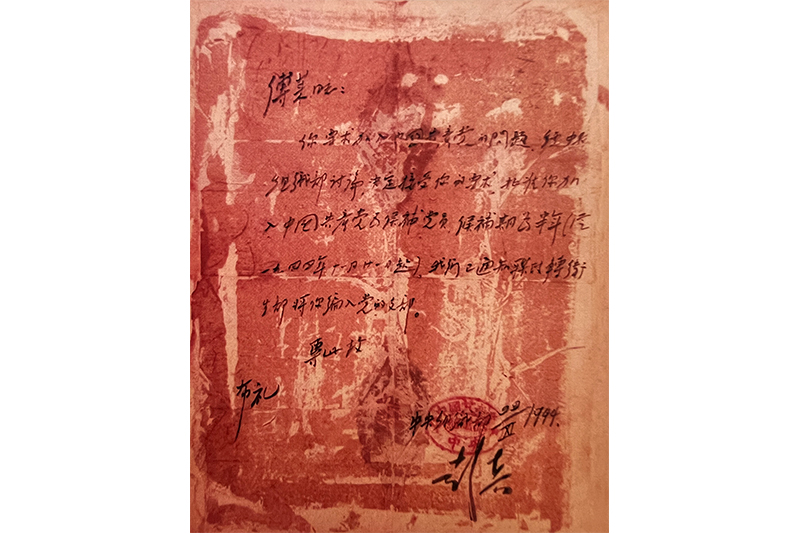 傅莱同志:
你要求加入中国共产党的问题,经中央
组织部讨论,决定接受你的要求,批准你加
入中国共产党为候补党员,候补期为半年(從
一九四四年十一月廿一日起),我们已通知联防軍衛
生部将你编入党的支部。
专此 致
布礼
中央组织部 22/XI 1944.
彭真